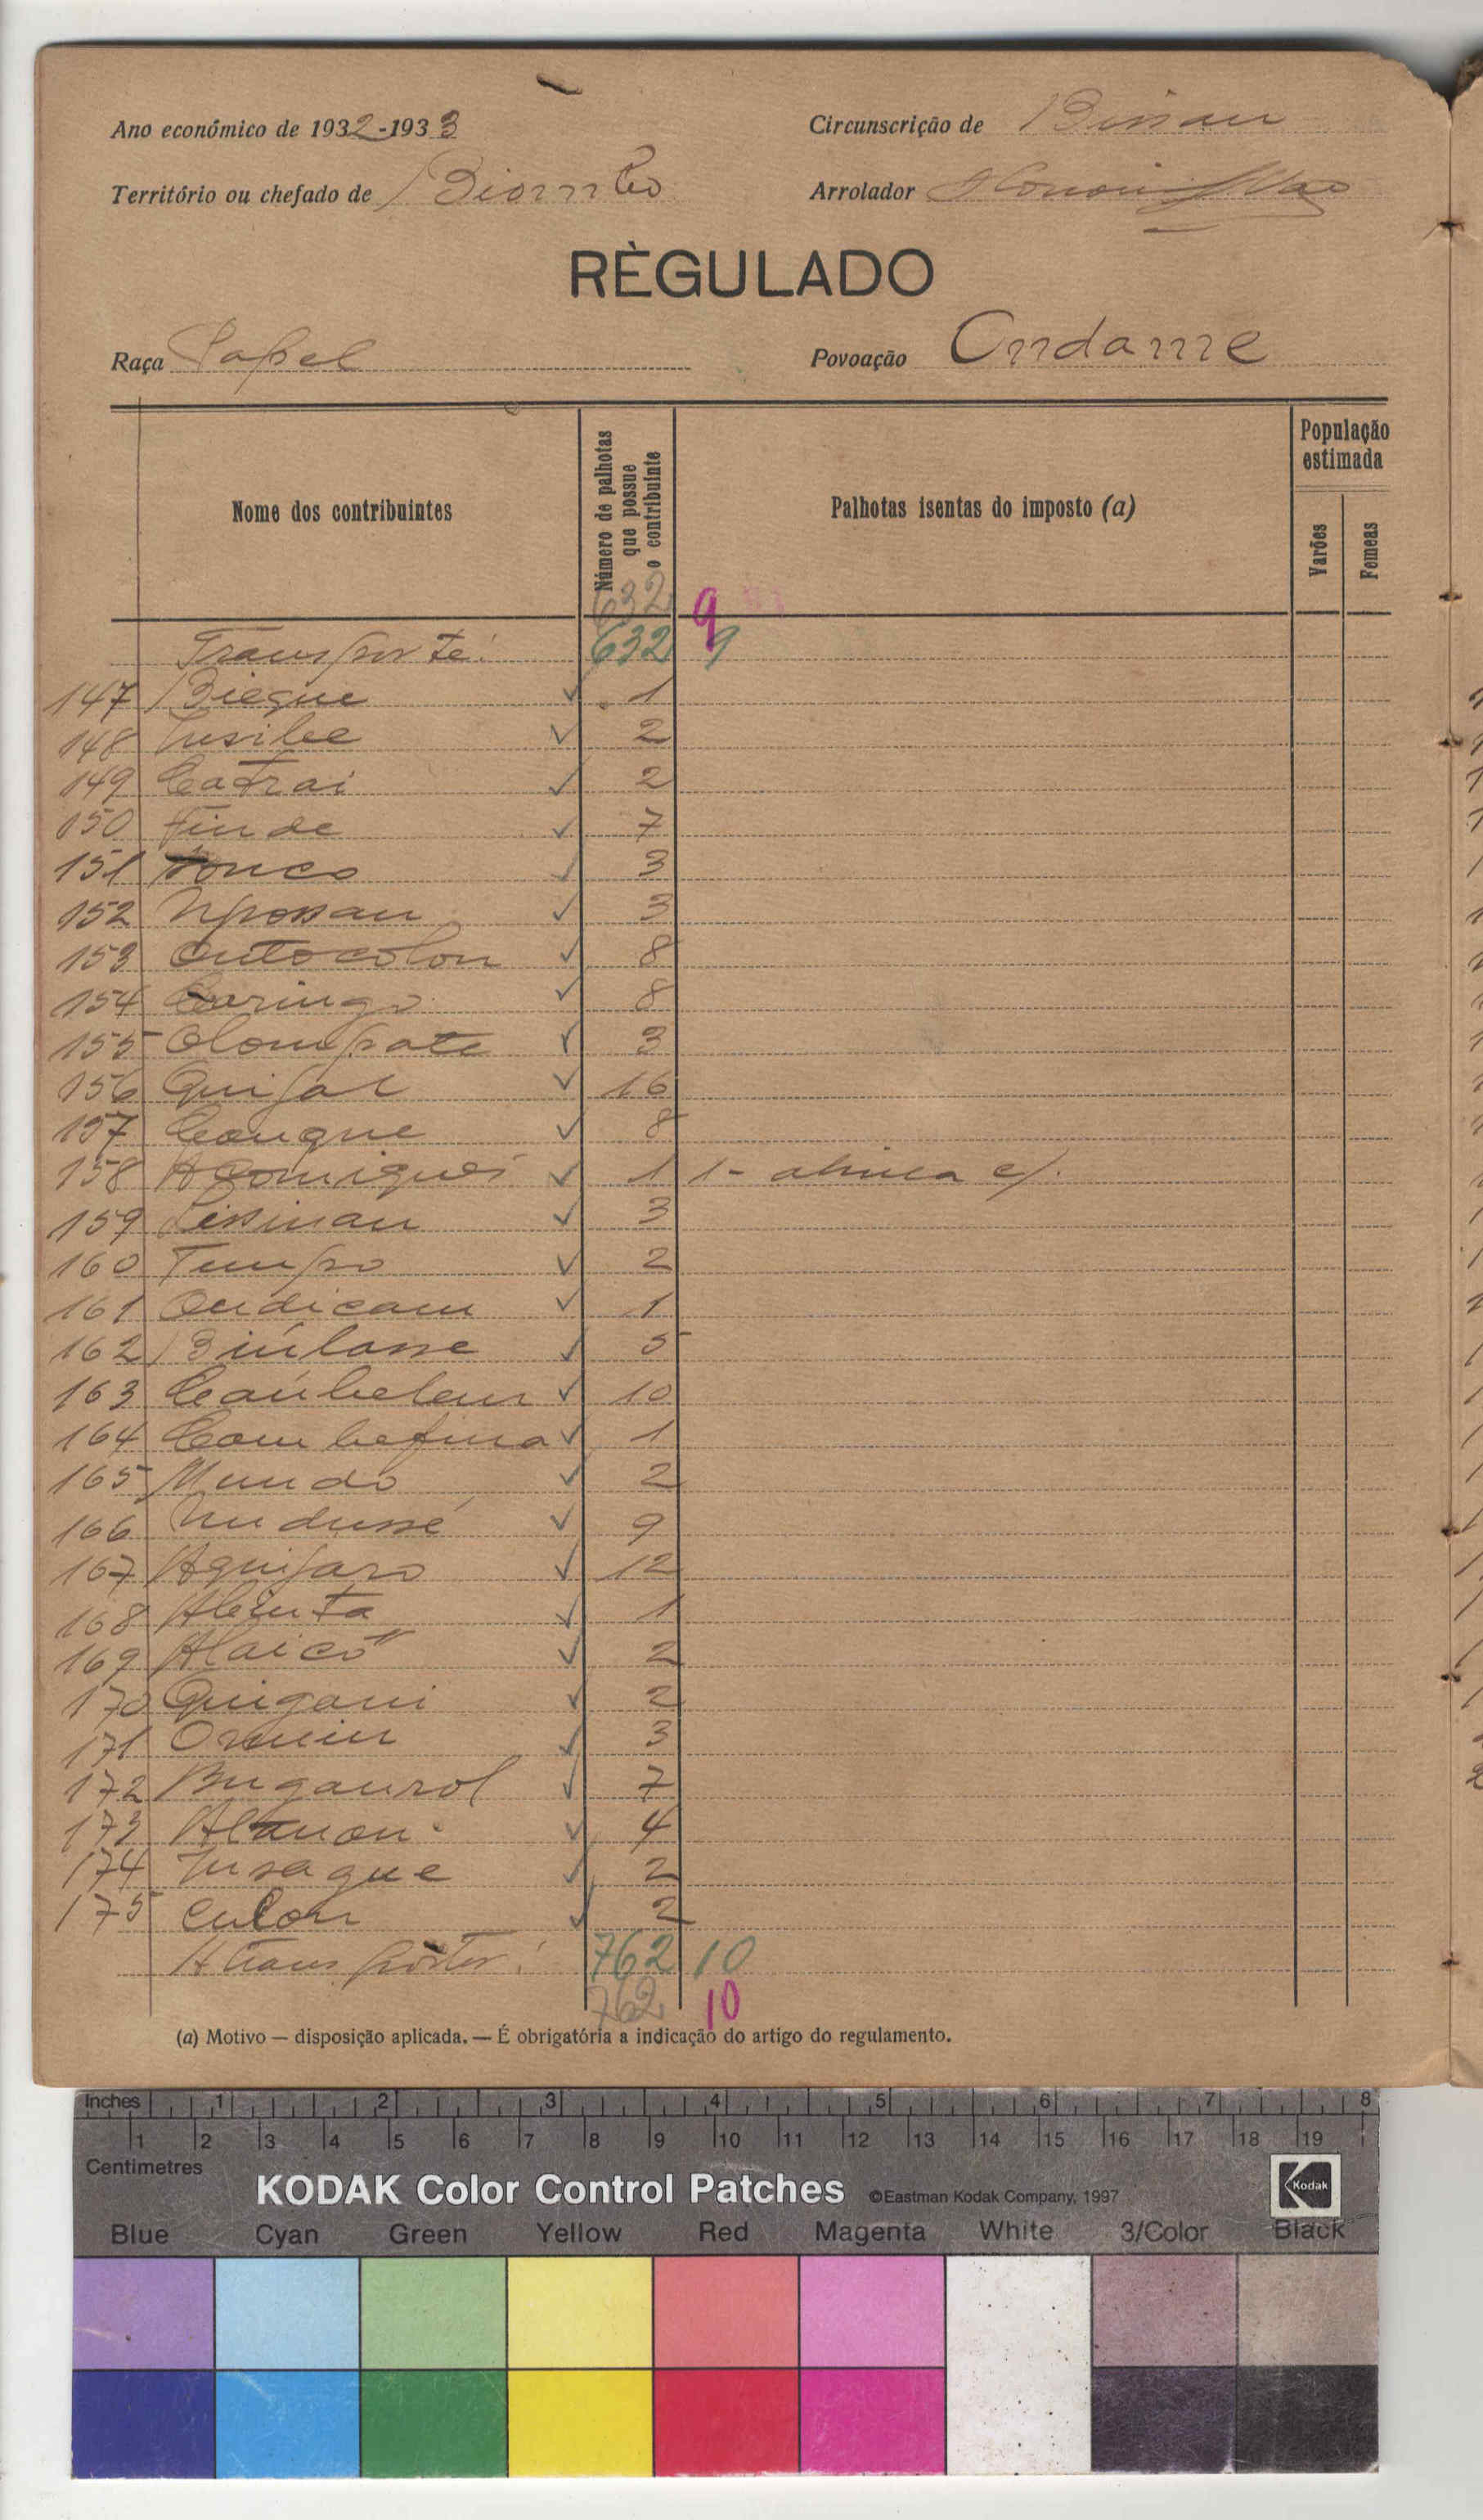 Ano económico de 1932-1933
Circunscrição de Bissau
Território ou chefado de Biombo
Arrolador
RÈGULADO
Raça Papel
Povoação Ondame
Nome dos contribuintes
Número de palhotas que possue o contribuinte
Palhotas isentas do imposto (a)
População estimada
Varões
Femeas
632 9
Transporte: 632 9
147 Bieque 1
148 2
149 Catrai 2
150 Finde 7
151 3
152 Npossau 3
153 Outocolon 8
154 Caringo 8
155 Olompate 3
156 Quifal 16
157 Cauque 8
158 1 1- alinea c).
159 3
160 Tempo 2
161 Ondicam 1
162 Biúlasse 5
163 10
164 1
165 Mundo 2
166 9
167 Aquifaro 12
168 1
169 2
170 Quigani 2
171 3
172 7
173 4
174 2
175 Culon 2
A transportar: 762 10
762 10
(a) Motivo — disposição aplicada. — É obrigatória a indicação do artigo do regulamento.
Inches 1 2 3 4 5 6 7 8
1 2 3 4 5 6 7 8 9 10 11 12 13 14 15 16 17 18 19
Centimetres
KODAK Color Control Patches ©Eastman Kodak Company, 1997 Kodak
Blue Cyan Green Yellow Red Magenta White 3/Color Black